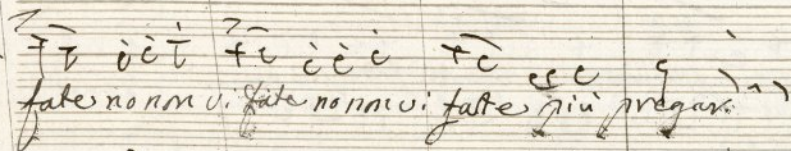 fate no non vi fate no non vi fatte più pregar.